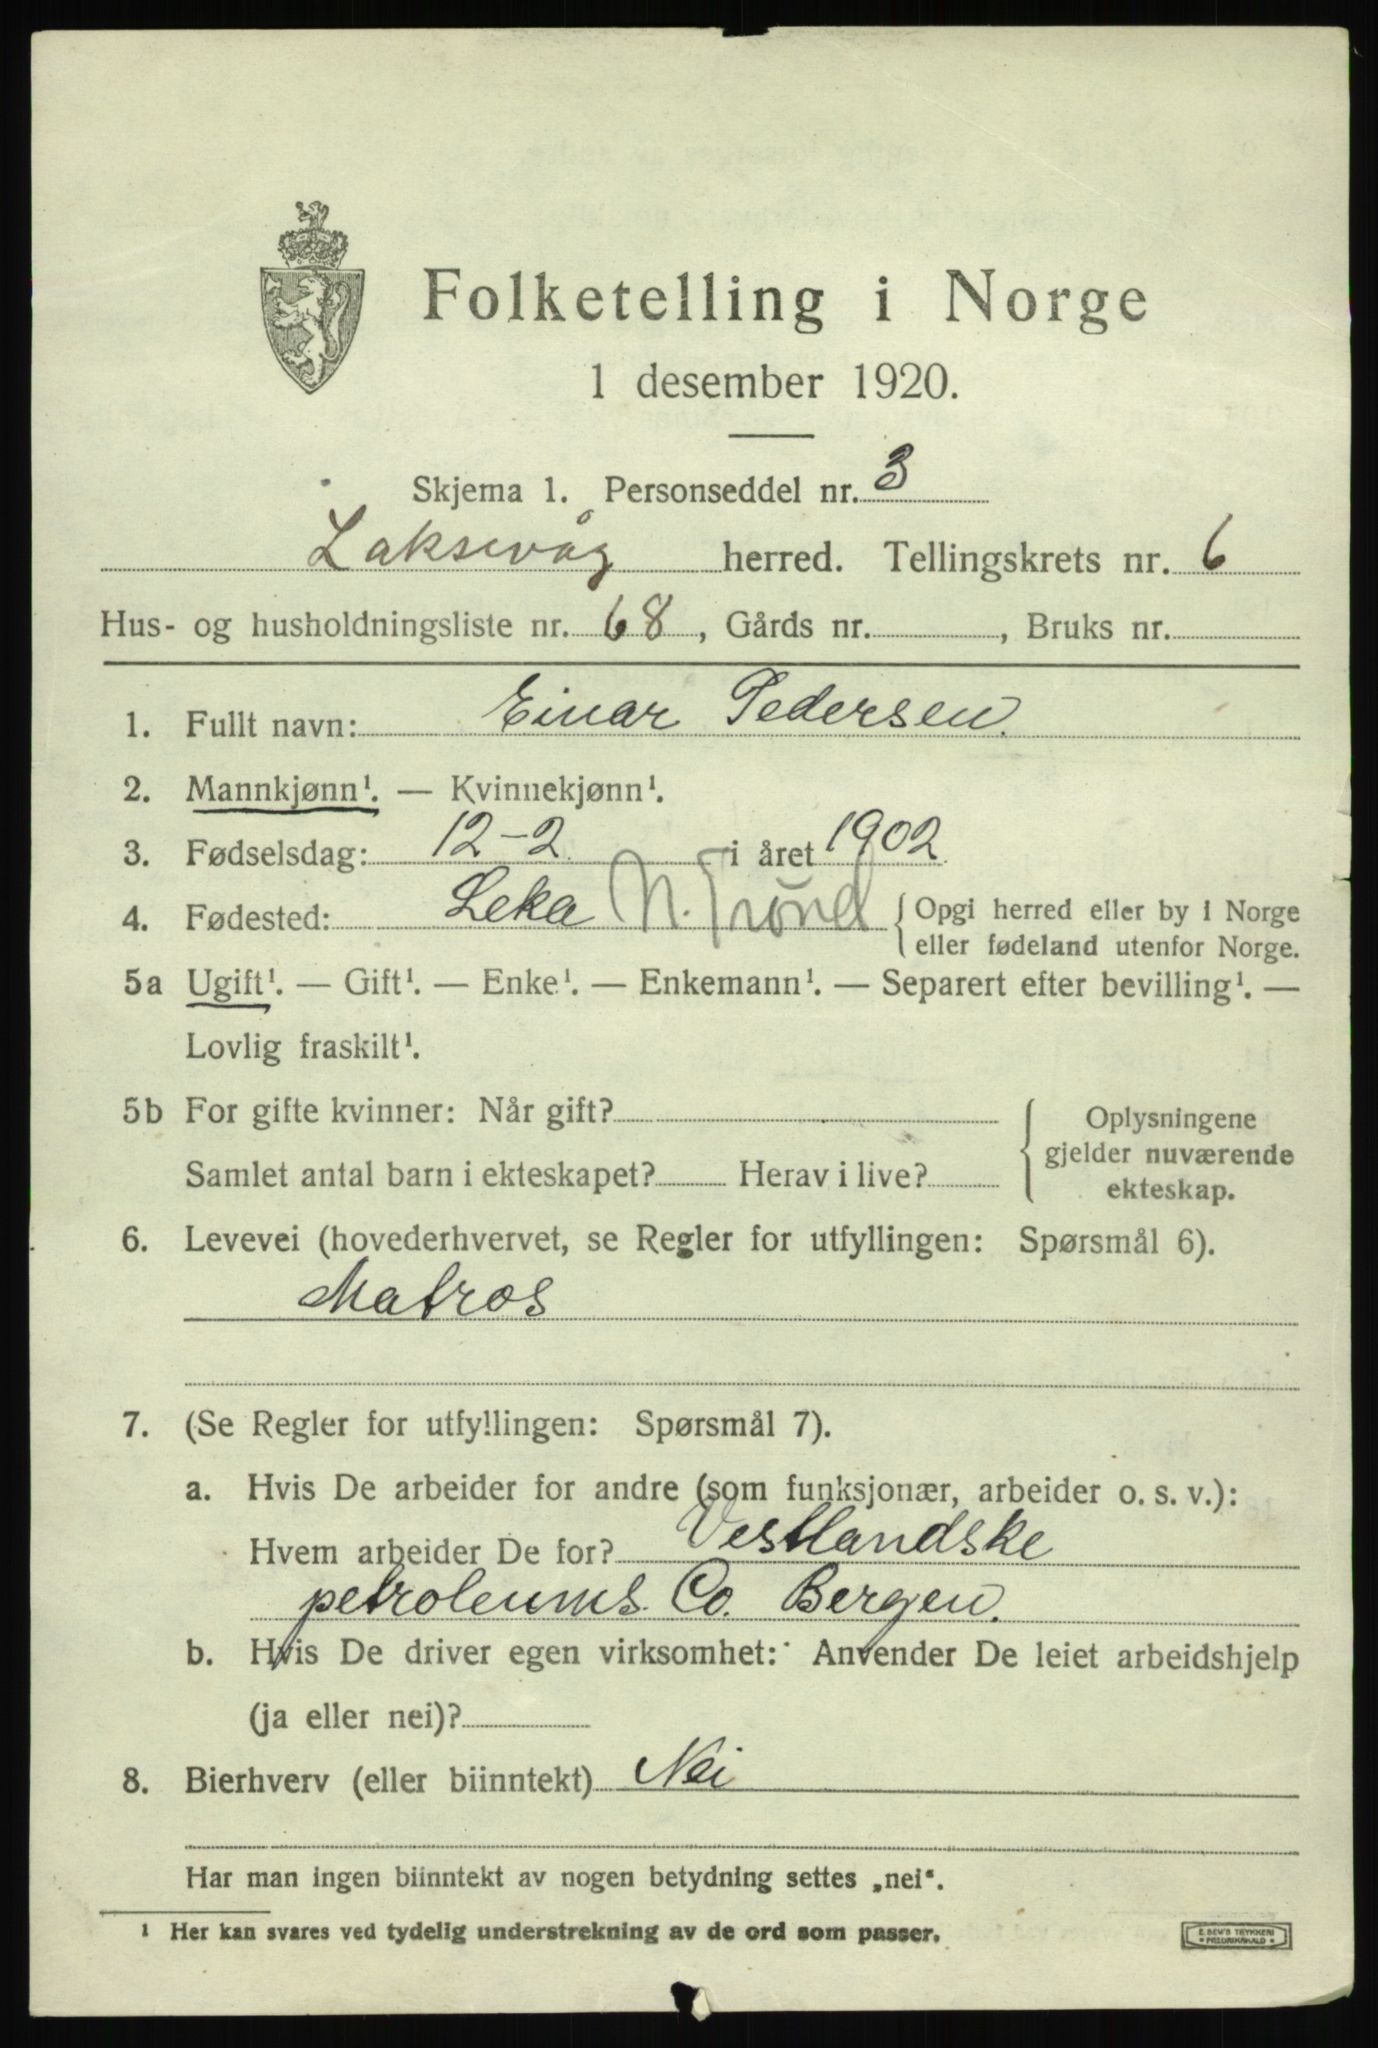 Folketelling i Norge
1 desember 1920.
Skjema 1. Personseddel nr. 3
Laksevåg herred. Tellingskrets nr. 6
Hus- og husholdningsliste nr. 68, Gårds nr. , Bruks nr.
1. Fullt navn: Einar Pedersen.
2. Mannkjønn¹. — Kvinnekjønn¹.
3. Fødselsdag: 12-2 i året 1902
4. Fødested: Leka N. Trönd { Opgi herred eller by i Norge
eller fødeland utenfor Norge.
5a Ugift¹. — Gift¹. — Enke¹. — Enkemann¹. — Separert efter bevilling¹. —
Lovlig fraskilt¹.
5b For gifte kvinner: Når gift? { Oplysningene
gjelder nuværende
Samlet antal barn i ekteskapet? Herav i live? ekteskap.
6. Levevei (hovederhvervet, se Regler for utfyllingen: Spørsmål 6).
Matros
7. (Se Regler for utfyllingen: Spørsmål 7).
a. Hvis De arbeider for andre (som funksjonær, arbeider o. s. v.):
Hvem arbeider De for? Vestlandske
petroleums. Co. Bergen.
b. Hvis De driver egen virksomhet: Anvender De leiet arbeidshjelp
(ja eller nei)?
8. Bierhverv (eller biinntekt) Nei
Har man ingen biinntekt av nogen betydning settes „nei“.
¹ Her kan svares ved tydelig understrekning av de ord som passer.
E. SEM'S TRYKKERI
FREDRIKSHALD